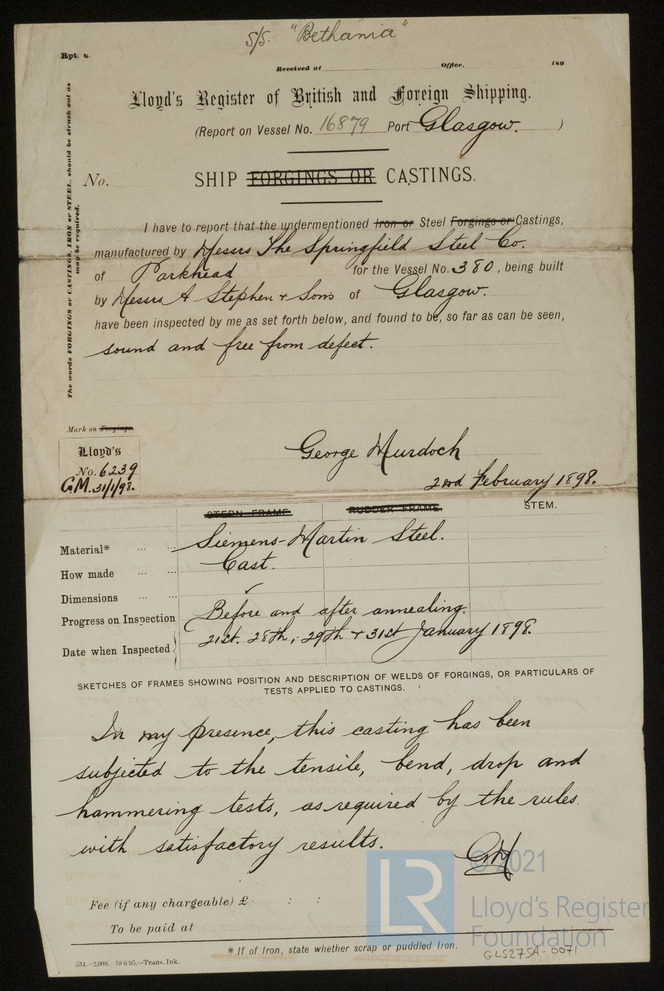 S/S. "Bethania"
Rpt. 6.
Received at Office, 189
Lloyd's Register of British and Foreign Shipping.
(Report on Vessel No. 16879 Port Glasgow. )
No. SHIP FORGINGS OR CASTINGS.
The words FORGINGS or CASTINGS, IRON or STEEL, should be struck out as
may be required.
I have to report that the undermentioned Iron or Steel Forgings or Castings,
manufactured by Messrs The Springfield Steel Co.
of Parkhead for the Vessel No. 380, being built
by Messrs A Stephen & Sons of Glasgow.
have been inspected by me as set forth below, and found to be, so far as can be seen,
sound and free from defect.
Mark on Forgings.
Lloyd's
No. 6239
G.M. 31/1/98.
George Murdoch
2nd February 1898.
STERN FRAME RUDDER FRAME. STEM.
Material* ... ... Siemens-Martin Steel.
How made ... ... Cast.
Dimensions ... ...
Progress on Inspection Before and after annealing.
Date when Inspected 21st, 28th, 29th & 31st January 1898.
SKETCHES OF FRAMES SHOWING POSITION AND DESCRIPTION OF WELDS OF FORGINGS, OR PARTICULARS OF
TESTS APPLIED TO CASTINGS.
In my presence, this casting has been
subjected to the tensile, bend, drop and
hammering tests, as required by the rules
with satisfactory results.
GM
Fee (if any chargeable) £ : :
To be paid at
* If of Iron, state whether scrap or puddled Iron.
534.—2,000. 19 6.95.—Trans. Ink.
GLS275A-0071
LR
© 2021
Lloyd's Register
Foundation